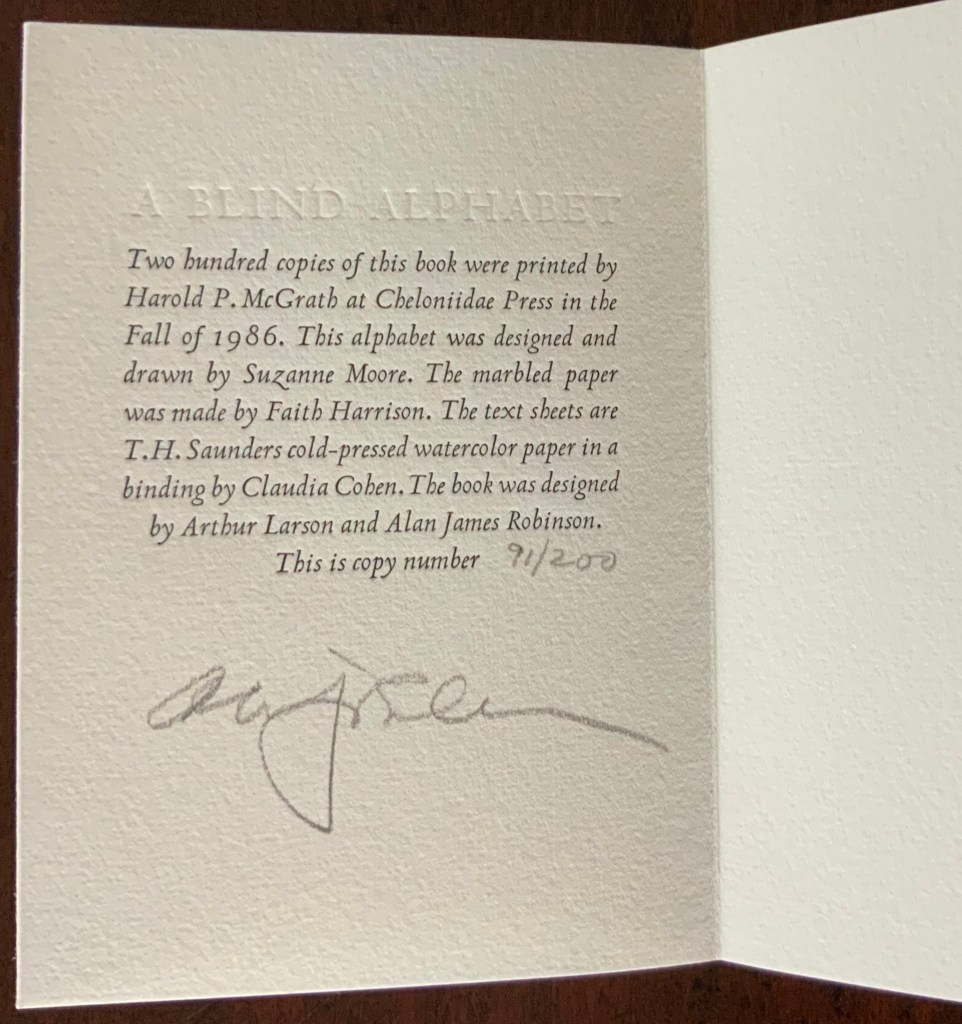 A BLIND ALPHABET
Two hundred copies of this book were printed by
Harold P. McGrath at Cheloniidae Press in the
Fall of 1986. This alphabet was designed and
drawn by Suzanne Moore. The marbled paper
was made by Faith Harrison. The text sheets are
T.H. Saunders cold-pressed watercolor paper in a
binding by Claudia Cohen. The book was designed
by Arthur Larson and Alan James Robinson.
This is copy number 91/200